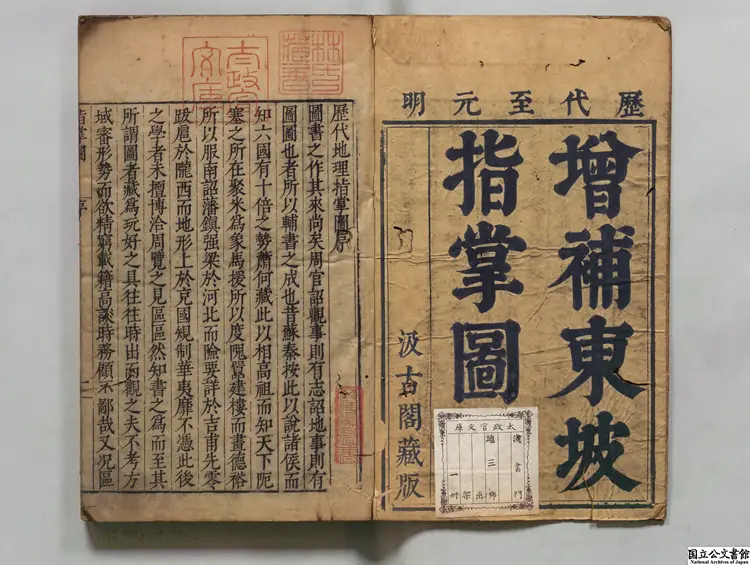 歷代至元明
增補東坡
指掌圖
汲古閣藏版
太政官文庫
漢書門
地三
一冊
林氏藏書
歷代地理指掌圖序
圖書之作其來尚矣周官詔觀事則有志詔地事則有
圖圖也者所以輔書之成也昔蘇秦按此以說諸侯而
知六國有十倍之勢蕭何藏此以相高祖而知天下阨
塞之所在聚米爲象馬援所以度隗囂建樓而畫德裕
所以服南詔藩鎮强梁於河北而險要詳於吉甫先零
跋扈於隴西而地形上於充國規制華夷靡不憑此後
之學者未擅博洽周覽之見區區然知書之爲而至其
所謂圖者藏爲玩好之具往往時出函觀之夫不考方
域審形勢而欲精窮載籍高談時務顧不鄙哉又况區
指掌圖 序
国立公文書館
National Archives of Japan